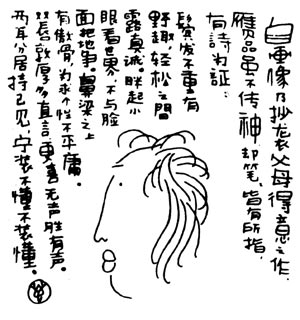 自画像乃抄袭父母得意之作.
赝品虽不传神 却笔、皆有所指,
有詩为証:
鬓发不重有
野趣,轻松之間
露真诚.眯起小
眼看世界,不与脸
面把地争。鼻梁之上
有傲骨,为求个性不平庸。
双唇敦厚多直言,更喜无声胜有声。
两耳分居持己见,宁装不懂不装懂。